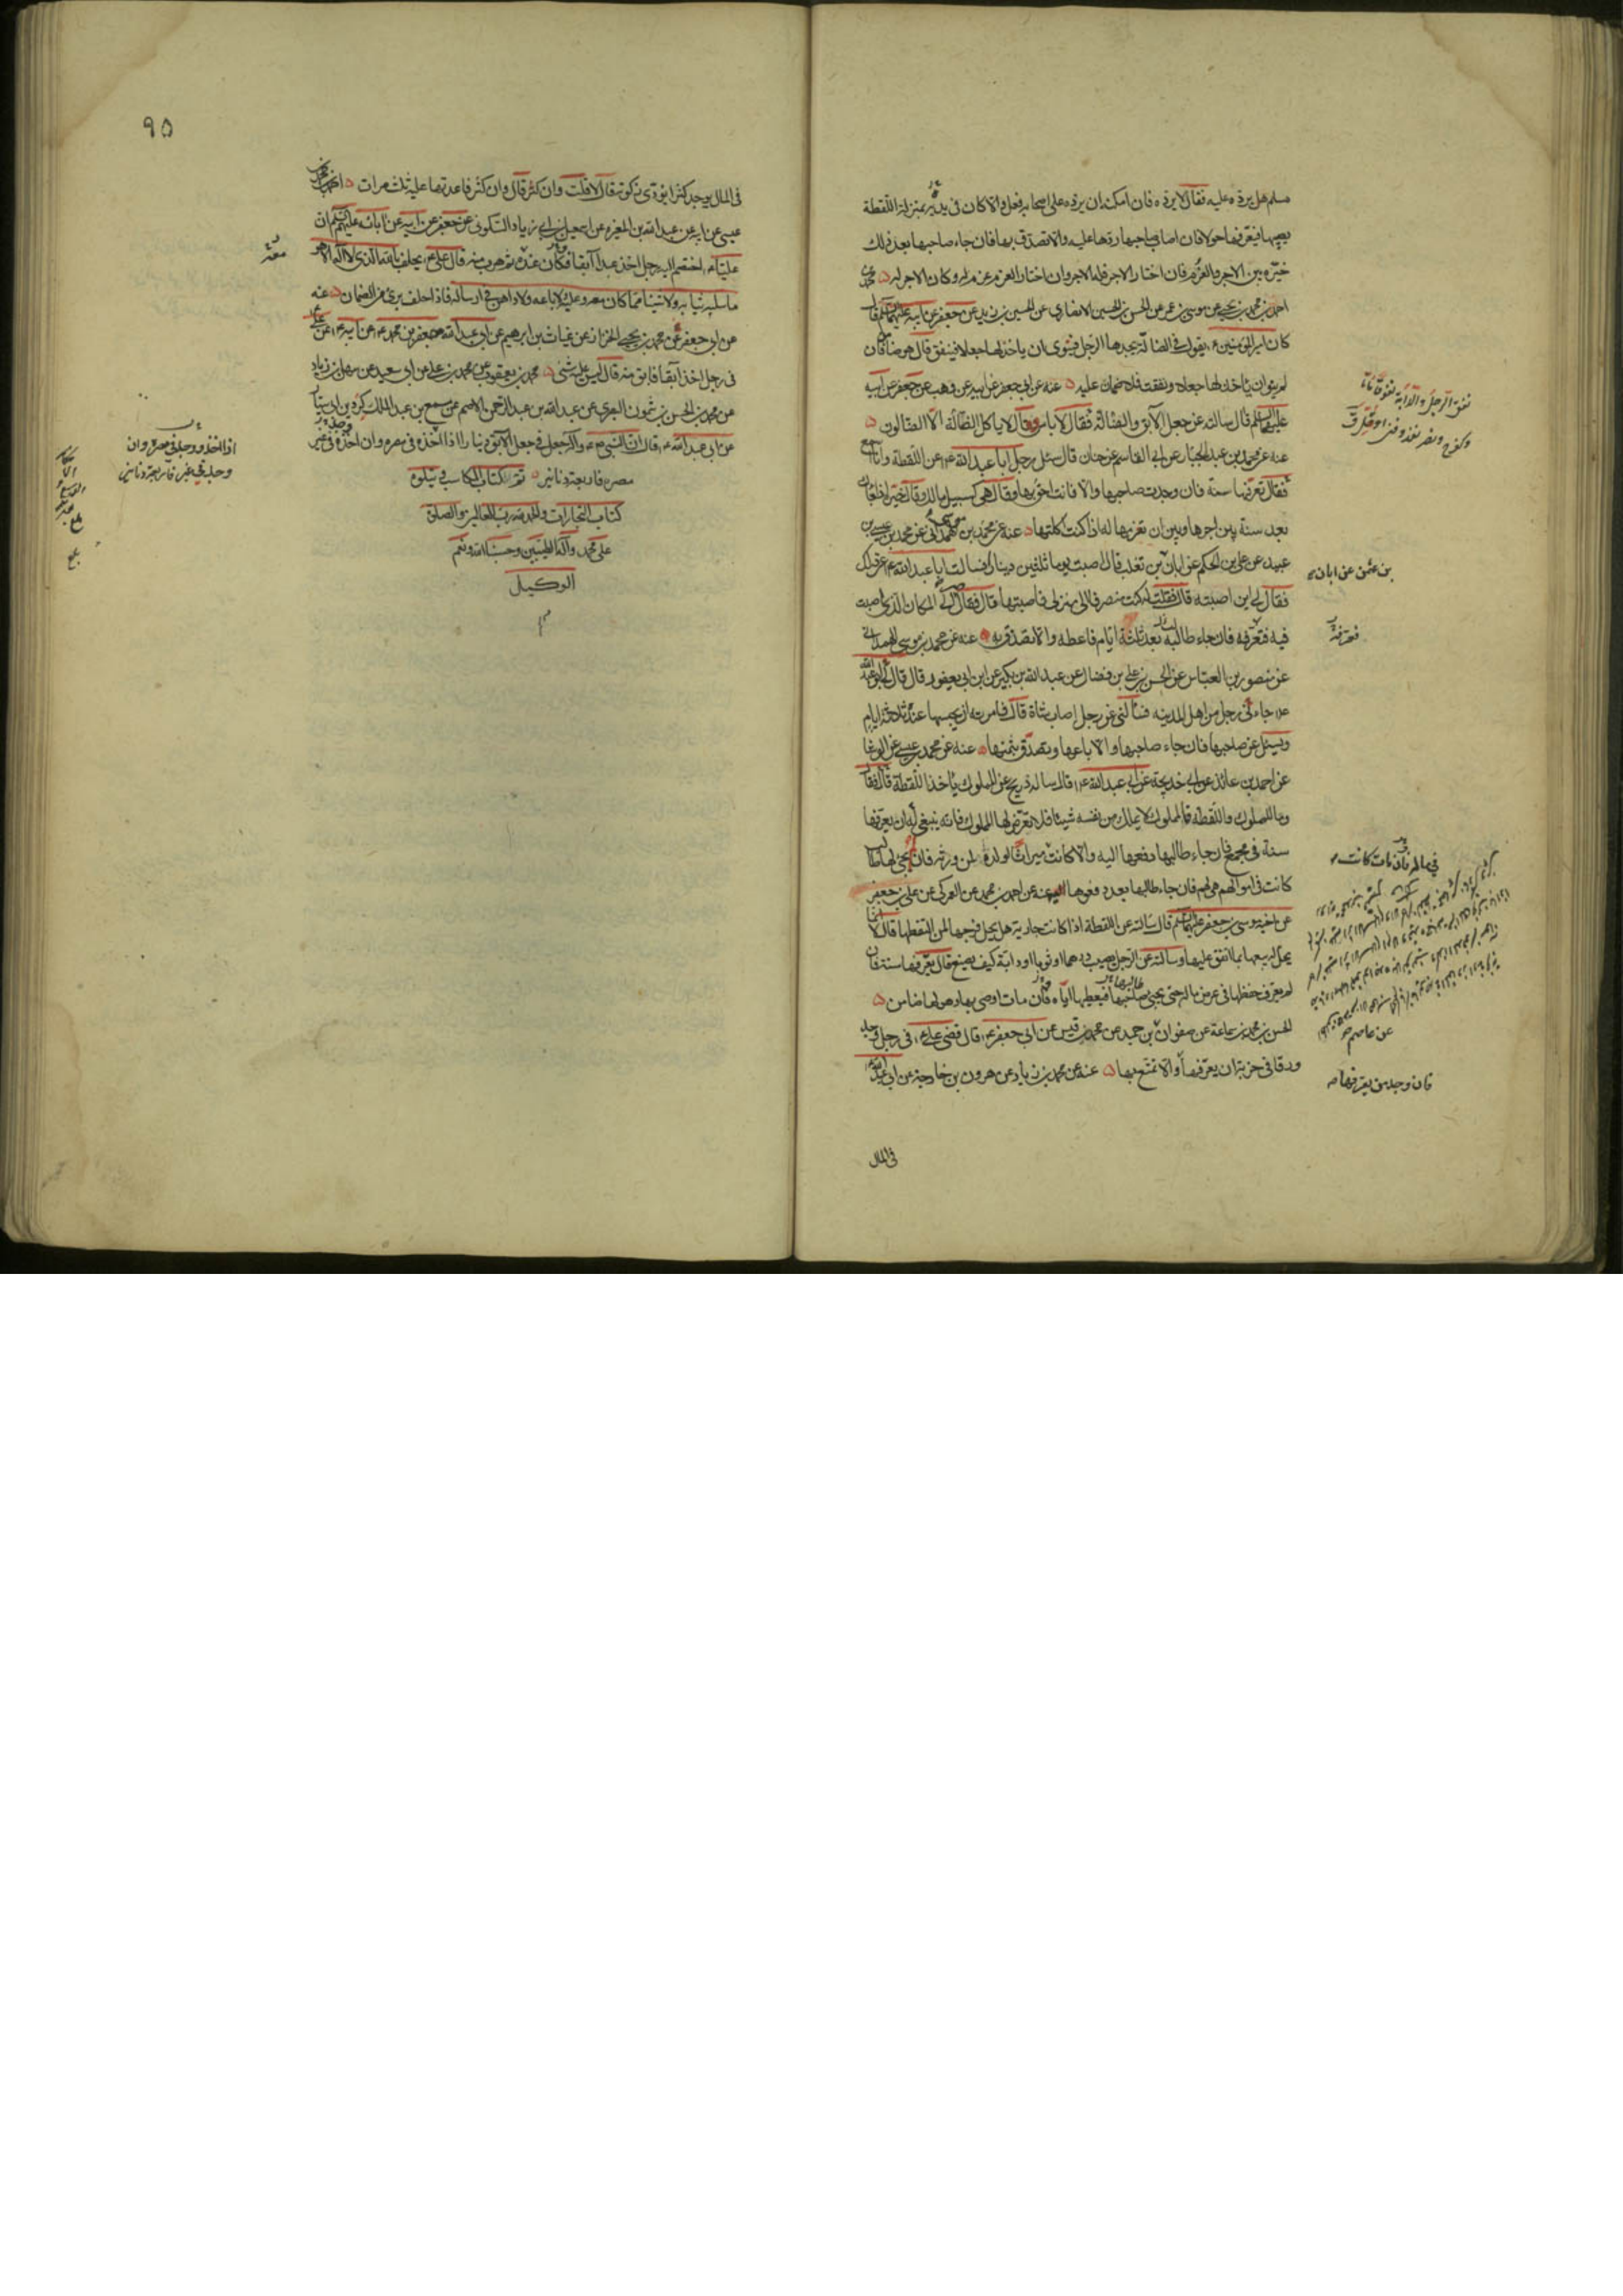 مسلم هل يرده عليه فقال لا يرده فان امكنه ان يرده على اصحابه فعل والا كان في يده بمنزلة اللقطة
يصيبها فيعرفها حولا فان اصاب صاحبها ردها عليه والا تصدق بها فان جاء صاحبها بعد ذلك
خيره بين الاجر والغرم فان اختار الاجر فله الاجر وان اختار الغرم غرم له وكان الاجر له
احمد بن محمد بن يحيى عن موسى بن عمر عن الحسن بن الحسين الانصاري عن الحسين بن زيد عن جعفر عن ابيه عليهما السلم قال
كان امير المؤمنين ع يقول في الضالة يجدها الرجل فينوي ان ياخذ لها جعلا فينفق قال هو ضامن فان
لم ينو ان ياخذ لها جعلا ونفقت فلا ضمان عليه عنه عن ابي جعفر عن ابيه عن وهب عن جعفر عن ابيه
عليهما السلم قال سالته عن جعل الآبق والضالة فقال لا باس وقال لا ياكل الضالة الا الضالون
عنه عن محمد بن عبد الجبار عن ابي القاسم عن حنان قال سئل رجل ابا عبد الله ع عن اللقطة وانا اسمع
فقال تعرفها سنة فان وجدت صاحبها والا فانت احق بها وقال هي كسبيل مالك وقال خيره اذا جاءك
بعد سنة بين اجرها وبين ان تغرمها له اذا كنت اكلتها عنه عن محمد بن موسى الهمداني عن محمد بن عيسى بن
عبيد عن علي بن الحكم عن ابان بن تغلب قال اصبت يوما ثلثين دينارا فسالت ابا عبد الله ع عن ذلك
فقال لي اين اصبته قال فقلت له كنت منصرفا الى منزلي فاصبتها قال فقال لي صر الى المكان الذي اصبت
فيه فتعرفه فان جاء طالبه بعد ثلثة ايام فاعطه والا تصدق به عنه عن محمد بن موسى الهمداني
عن منصور بن العباس عن الحسن بن علي بن فضال عن عبد الله بن بكير عن ابن ابي يعفور قال قال ابو عبد الله
ع جاءني رجل من اهل المدينه فسألني عن رجل اصاب شاة قال فامرته ان يحبسها عنده ثلاثة ايام
ويسئل عن صاحبها فان جاء صاحبها والا باعها وتصدق بثمنها عنه عن محمد بن عيسى عن الوشا
عن احمد بن عائذ عن ابي خديجة عن ابي عبد الله ع قال ساله ذريح عن المملوك ياخذ اللقطة قال فقال
وما للمملوك واللقطه فالمملوك لا يملك من نفسه شيئا فلا تعرض لها المملوك فانه ينبغي له ان يعرفها
سنة في مجمع فان جاء طالبها دفعها اليه والا كانت ميراثا لولده ولمن ورثه فان لم يجئ لها طالب
كانت في اموالهم هي لهم فان جاء طالبها بعد دفعوها اليه عنه عن احمد بن محمد عن العمركي عن علي بن جعفر
عن اخيه موسى بن جعفر عليهما السلم قال سالته عن اللقطة اذا كانت جارية هل يحل فرجها لمن التقطها قال لا انما
يحل له بيعها بما انفق عليها وسالته عن الرجل يصيب درهما او ثوبا او دابة كيف يصنع قال يعرفها سنة فان
لم يعرف حفظها في عرض ماله حتى يجئ طالبها فيعطيها اياه فان مات اوصى بها وهو لها ضامن
الحسن بن محمد بن سماعة عن صفوان بن حميد عن محمد بن قيس عن ابي جعفر ع قال قضى علي ع في رجل وجد
ورقا في خربة ان يعرفها والا تمتع بها عنه عن محمد بن زياد عن هرون بن خارجة عن ابي عبد الله ع
في المال
بن عثمن عن ابان
فتعرفه
في ماله فان مات كانت
عن عاصم
فان وجد من يعرفها
٩٥
في المال يوجد كنزا يؤدي زكوته قال لا قلت وان كثر قال وان كثر فاعدتها عليه ثلث مرات
عيسى عن ابيه عن عبد الله بن المغيره عن اسمعيل بن ابي زياد السكوني عن جعفر عن ابيه عن ابائه عليهم السلم ان
عليا ع اختصم اليه رجل اخذ عبدا آبقا فكان عنده ثم هرب منه قال علي ع يحلف بالله الذي لا اله الا هو
ما سلبه ثيابه ولا شيئا مما كان معه وعليه ولا باعه ولا داهن في ارساله فاذا حلف برئ من الضمان عنه
عن ابي جعفر عن محمد بن يحيى الخزاز عن غياث بن ابرهيم عن ابي عبد الله جعفر بن محمد ع عن ابيه ع عن علي ع
في رجل اخذ آبقا فابق منه قال ليس عليه شئ محمد بن يعقوب عن محمد بن علي عن ابي سعيد عن سهل بن زياد
عن محمد بن الحسن بن شمون البصري عن عبد الله بن عبد الرحمن الاصم عن مسمع بن عبد الملك كردين ابي سيار
عن ابي عبد الله ع قال ان النبي ص ع واله جعل في جعل الآبق دينارا اذا اخذه في مصره وان اخذه في غير
مصره فاربعة دنانير تم كتاب المكاسب يتلوه
كتاب التجارات والحمد لله رب العالمين والصلوة
على محمد وآله الطيبين وحسبنا الله ونعم
الوكيل
معه
اذا اخذ ووجد في مصره وان
وجد في غير فاربعة دنانير
بلغ